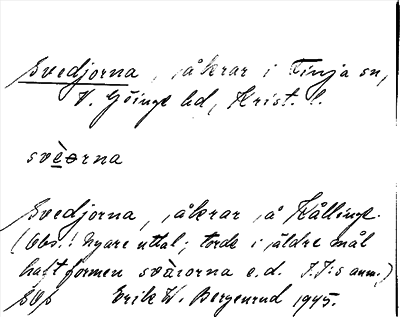 Svedjorna, åkrar i Finja sn,
V. Göinge hd, Krist. l.
svèørna
Svedjorna, åkrar å Kållinge.
(Obs.! Nyare uttal; torde i äldre mål
haft formen svèiorna e.d. I.I:s anm.)
Erik W. Bergenrud 1945.